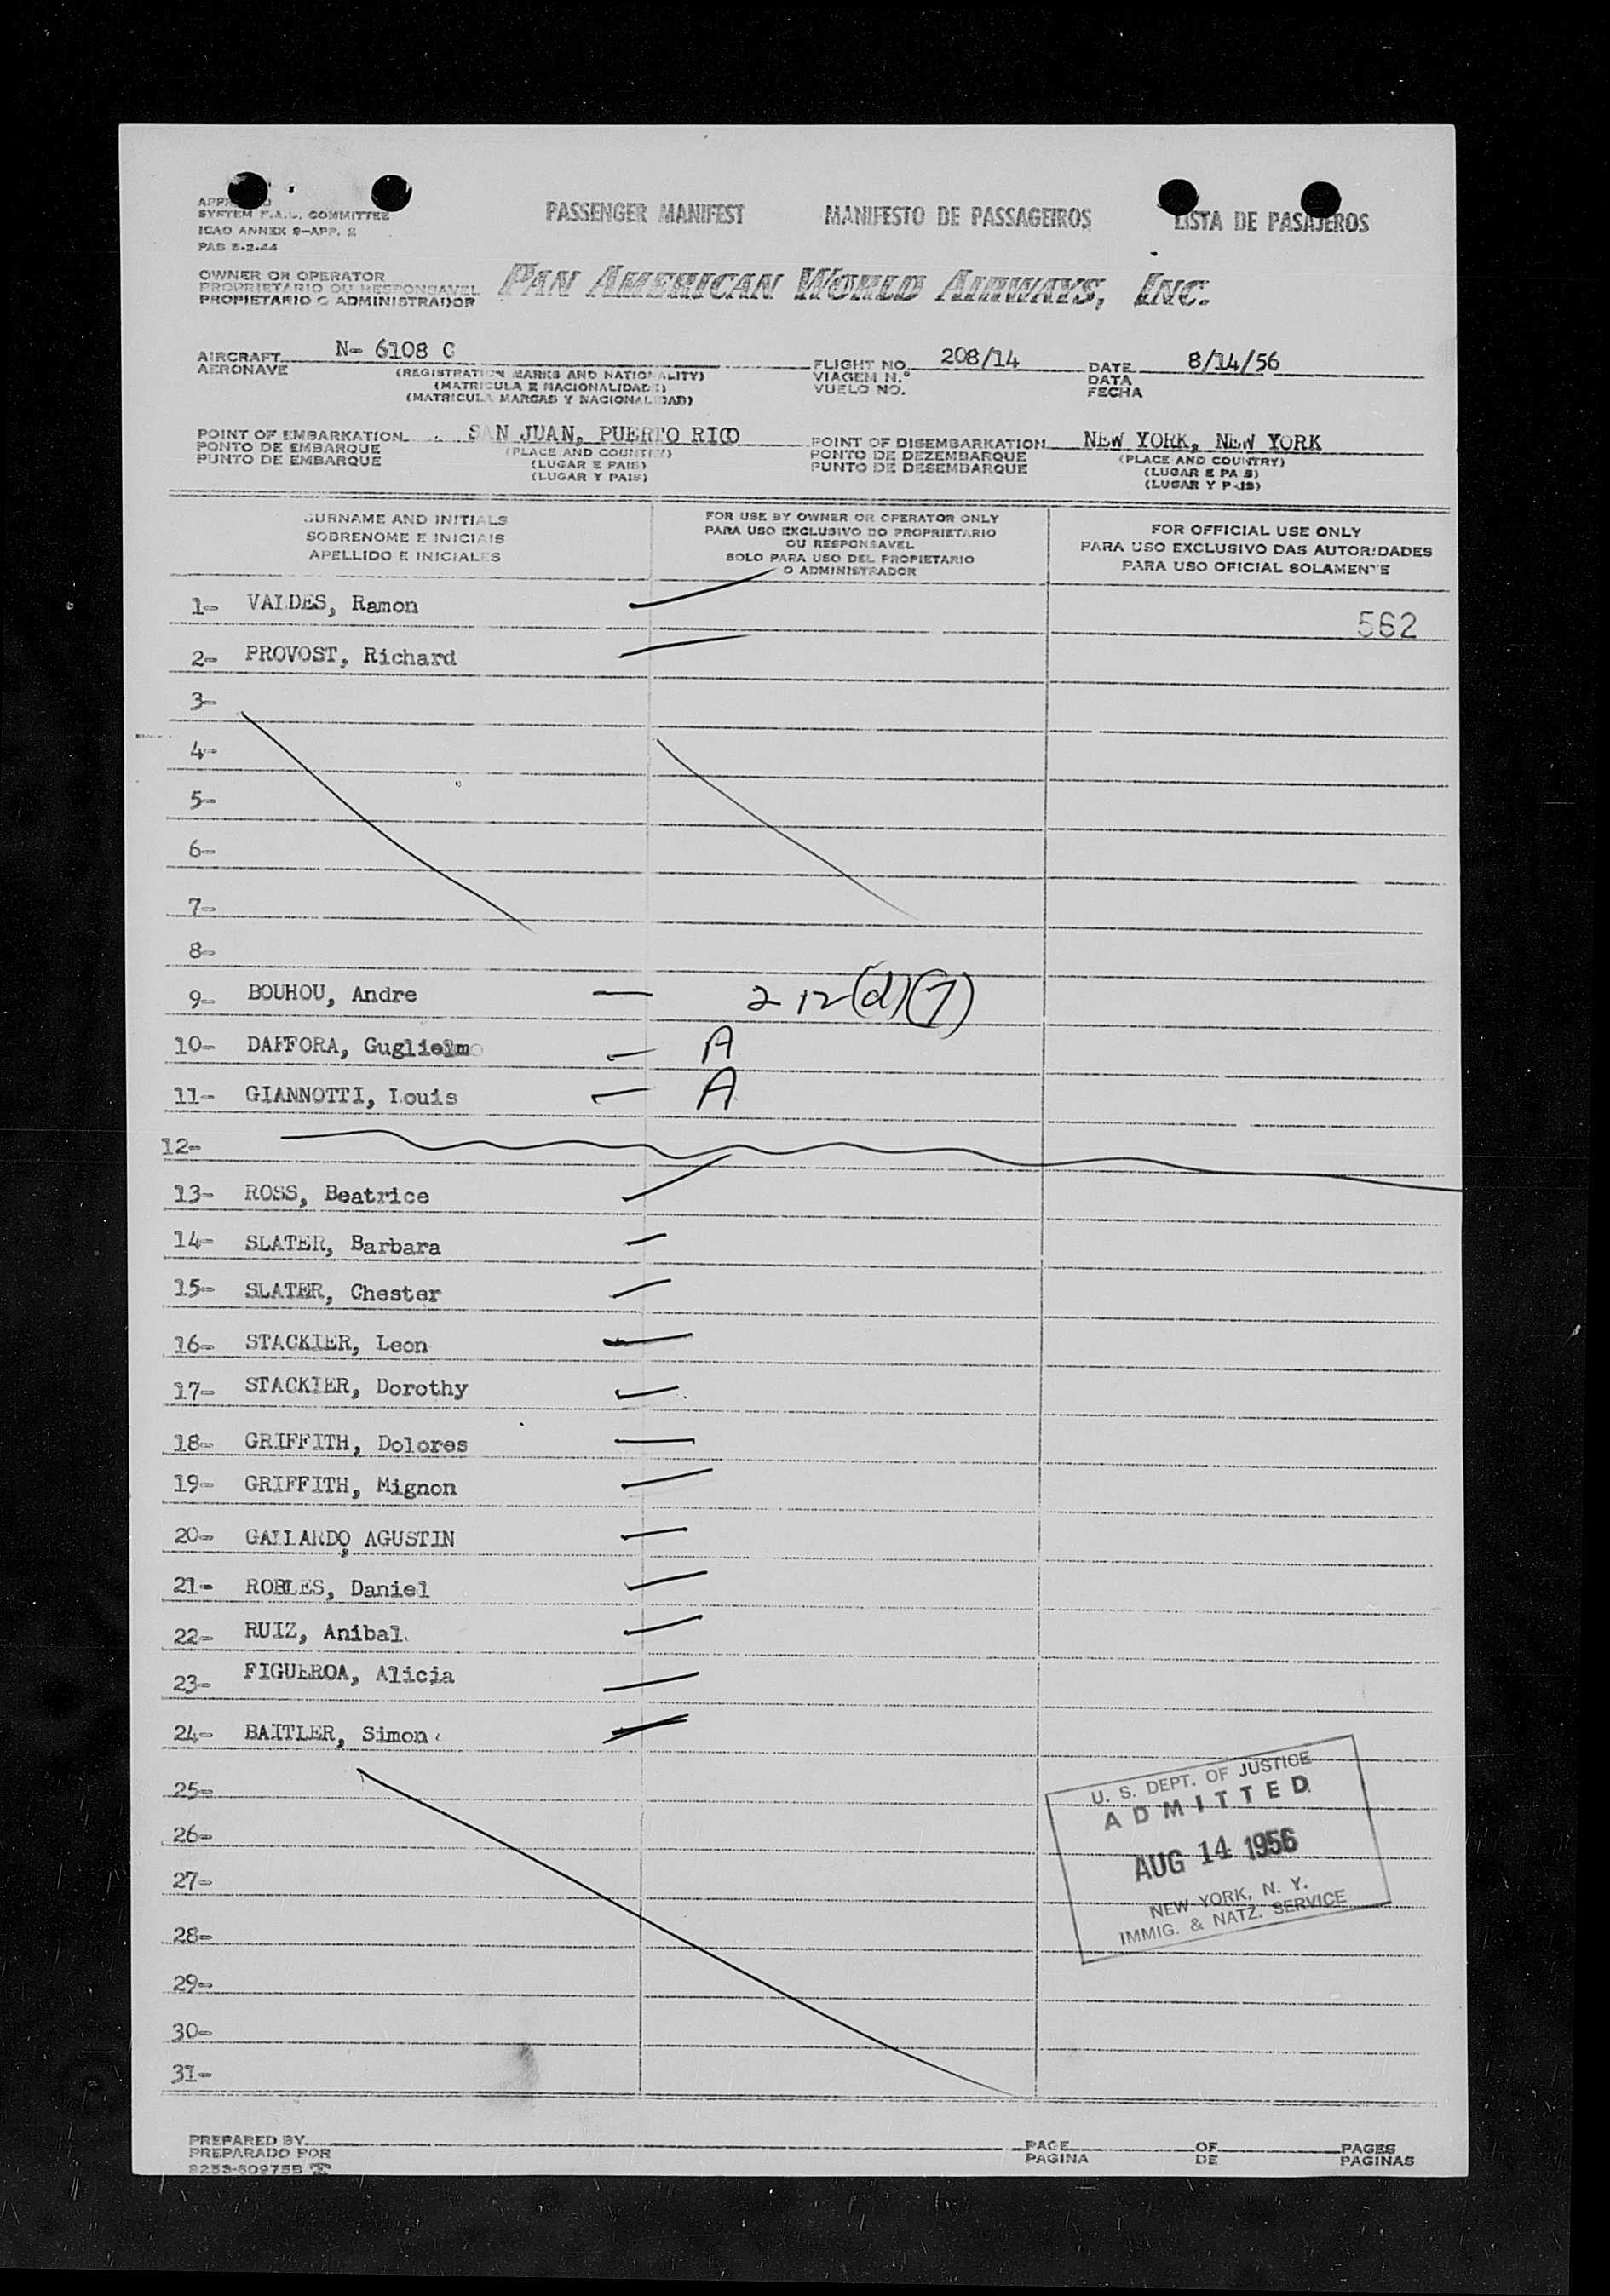 PASSENGER MANIFEST MANIFESTO DE PASSAGEIROS LISTA DE PASAJEROS
SYSTEM F.A.L. COMMITTEE
ICAO ANNEX 9-APP. 2
PAB 5-2-44
OWNER OR OPERATOR
PROPRIETARIO OU RESPONSAVEL
PROPIETARIO O ADMINISTRADOR
PAN AMERICAN WORLD AIRWAYS, INC.
AIRCRAFT N- 6108 C FLIGHT NO. 208/14 DATE 8/14/56
AERONAVE (REGISTRATION MARKS AND NATIONALITY) VIAGEM N.º DATA
(MATRICULA E NACIONALIDADE) VUELO NO. FECHA
(MATRICULA MARCAS Y NACIONALIDAD)
POINT OF EMBARKATION SAN JUAN, PUERTO RICO POINT OF DISEMBARKATION NEW YORK, NEW YORK
PONTO DE EMBARQUE (PLACE AND COUNTRY) PONTO DE DEZEMBARQUE (PLACE AND COUNTRY)
PUNTO DE EMBARQUE (LUGAR E PAIS) PUNTO DE DESEMBARQUE (LUGAR E PAIS)
(LUGAR Y PAIS) (LUGAR Y PAIS)
SURNAME AND INITIALS
SOBRENOME E INICIAIS
APELLIDO E INICIALES
FOR USE BY OWNER OR OPERATOR ONLY
PARA USO EXCLUSIVO DO PROPRIETARIO
OU RESPONSAVEL
SOLO PARA USO DEL PROPIETARIO
O ADMINISTRADOR
FOR OFFICIAL USE ONLY
PARA USO EXCLUSIVO DAS AUTORIDADES
PARA USO OFICIAL SOLAMENTE
1- VALDES, Ramon
562
2- PROVOST, Richard
3-
4-
5-
6-
7-
8-
9- BOUHOU, Andre 212(d)(7)
10- DAFFORA, Guglielmo A
11- GIANNOTTI, Louis A
12-
13- ROSS, Beatrice
14- SLATER, Barbara
15- SLATER, Chester
16- STACKIER, Leon
17- STACKIER, Dorothy
18- GRIFFITH, Dolores
19- GRIFFITH, Mignon
20- GALLARDO, AGUSTIN
21- ROBLES, Daniel
22- RUIZ, Anibal
23- FIGUEROA, Alicia
24- BAITLER, Simon
25-
26-
27-
28-
29-
30-
31-
U. S. DEPT. OF JUSTICE
ADMITTED
AUG 14 1956
NEW YORK, N. Y.
IMMIG. & NATZ. SERVICE
PREPARED BY PAGE OF PAGES
PREPARADO POR PAGINA DE PAGINAS
9253-60975B